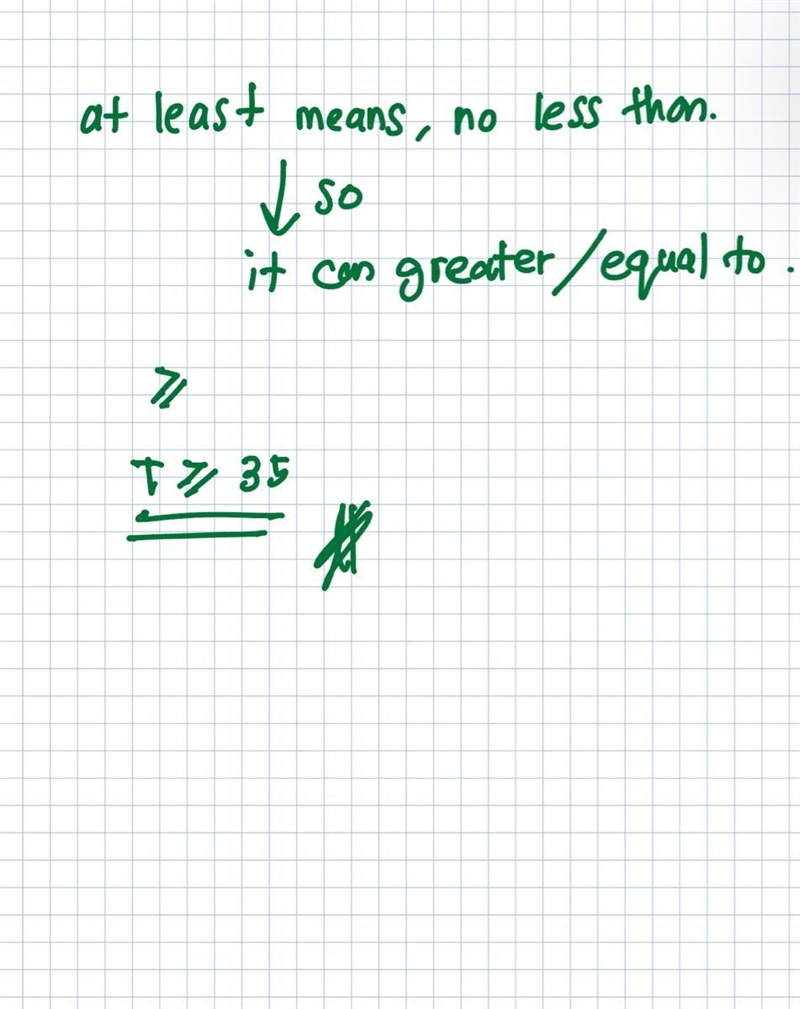 at least means, no less than.
↓ so
it can greater/equal to.
⩾
T ⩾ 35